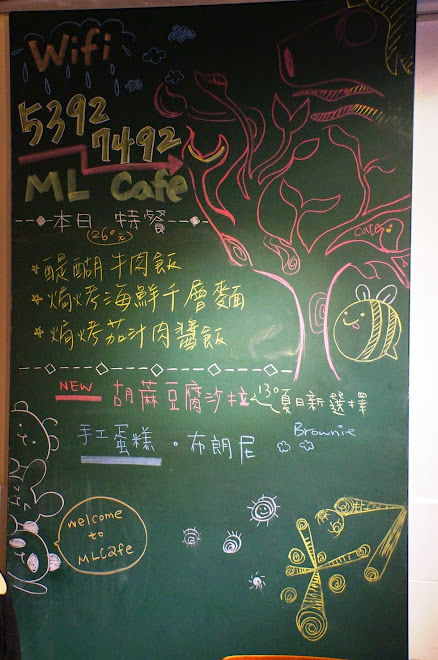 Wifi
5392
7492
ML Cafe
本日 特餐
(260元)
*醍醐牛肉飯
*焗烤海鮮千層麵
*焗烤茄汁肉醬飯
NEW 胡蔴豆腐沙拉 130 夏日新選擇
手工蛋糕。布朗尼 Brownie
welcome
to
MLCafe
Cafe